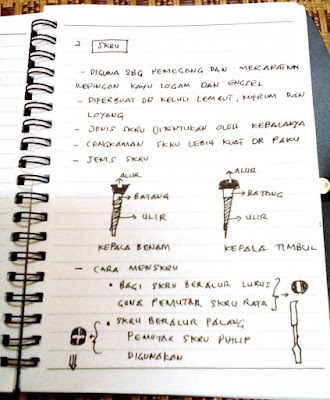 2 SKRU
- DIGUNA SBG PEMEGANG DAN MERAPATKAN
KEPINGAN KAYU LOGAM DAN ENGSEL
- DIPERBUAT DR KELULI LEMBUT, KUPRUM DAN
LOYANG
- JENIS SKRU DITENTUKAN OLEH KEPALANYA
- CENGKAMAN SKRU LEBIH KUAT DR PAKU
- JENIS SKRU
ALUR
BATANG
ULIR
KEPALA BENAM
ALUR
BATANG
ULIR
KEPALA TIMBUL
- CARA MENSKRU
• BAGI SKRU BERALUR LURUS
GUNA PEMUTAR SKRU RATA
• SKRU BERALUR PALANG
PEMUTAR SKRU PHILIP
DIGUNAKAN